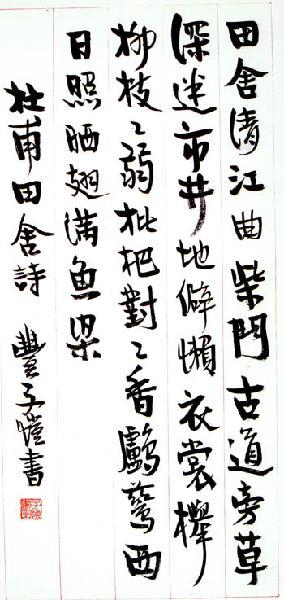 田舍清江曲柴門古道旁草
深迷市井地僻懶衣裳櫸
柳枝〻弱枇杷對〻香鸕鶿西
日照晒翅滿魚梁
杜甫田舍詩 豐子愷書